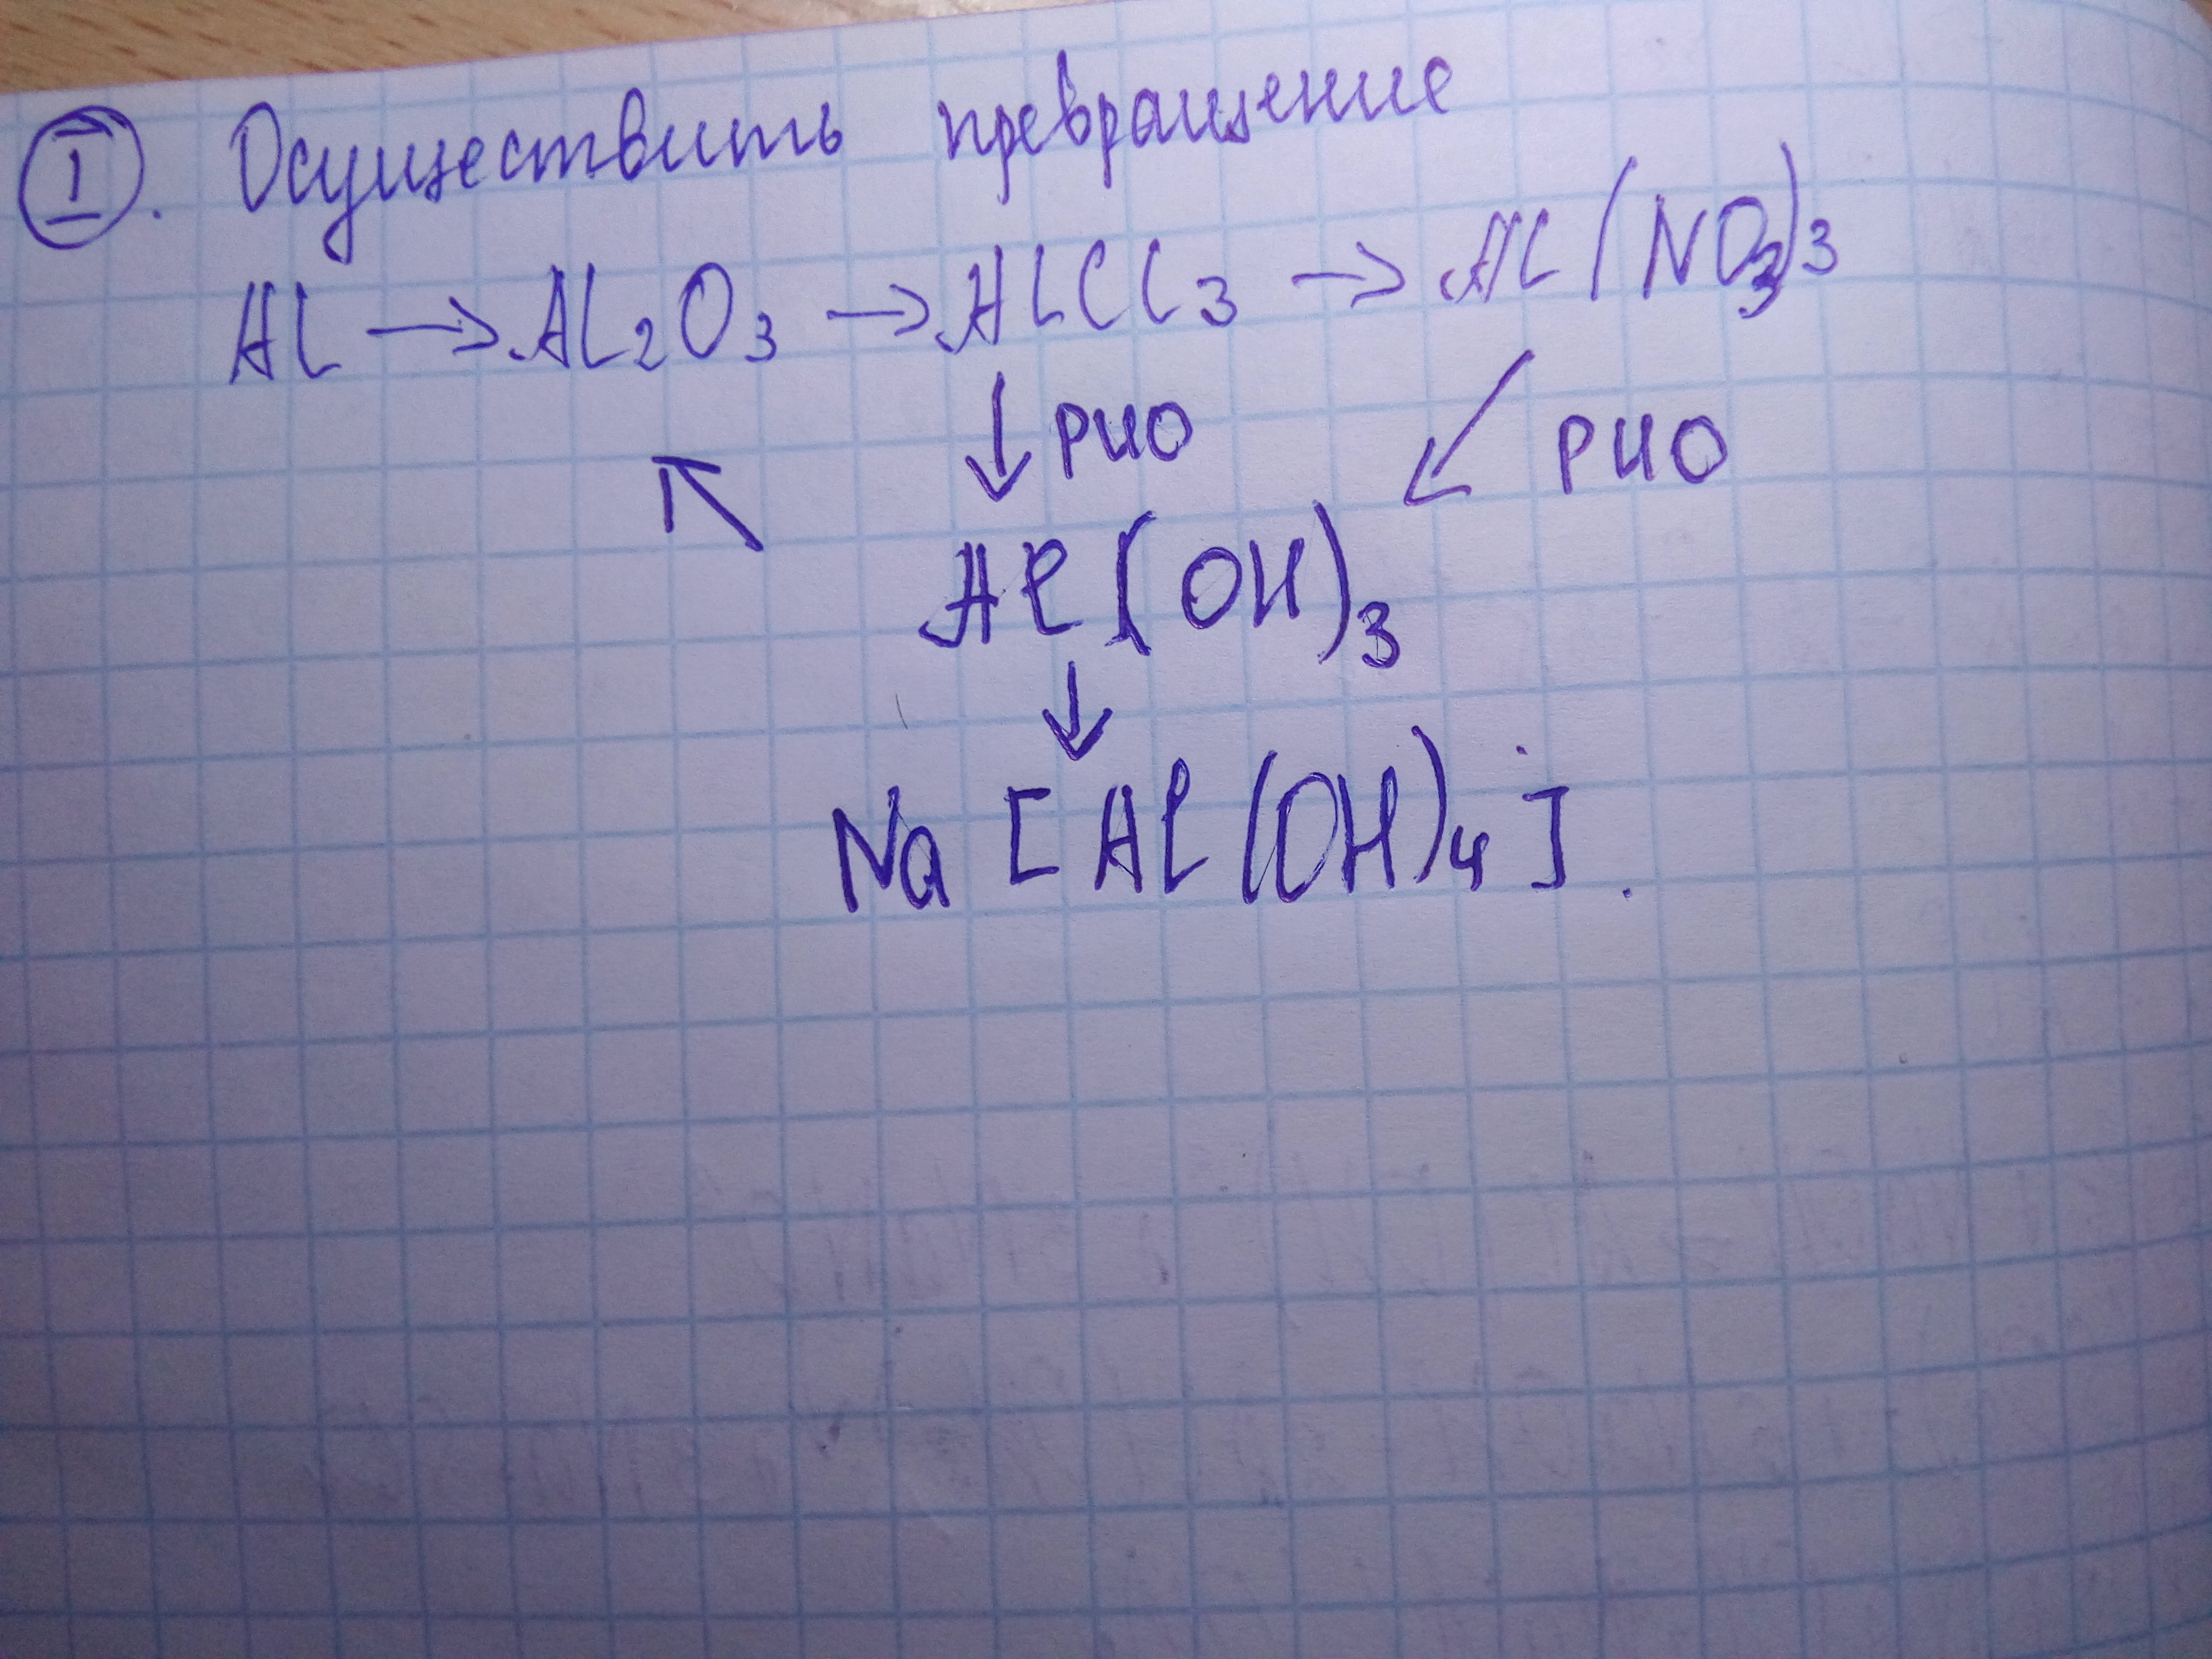 I. Осуществить превращение
Al → Al₂O₃ → AlCl₃ → Al(NO₃)₃
↓ РИО ↙ РИО
↖
Al(OH)₃
↓
Na[Al(OH)₄].